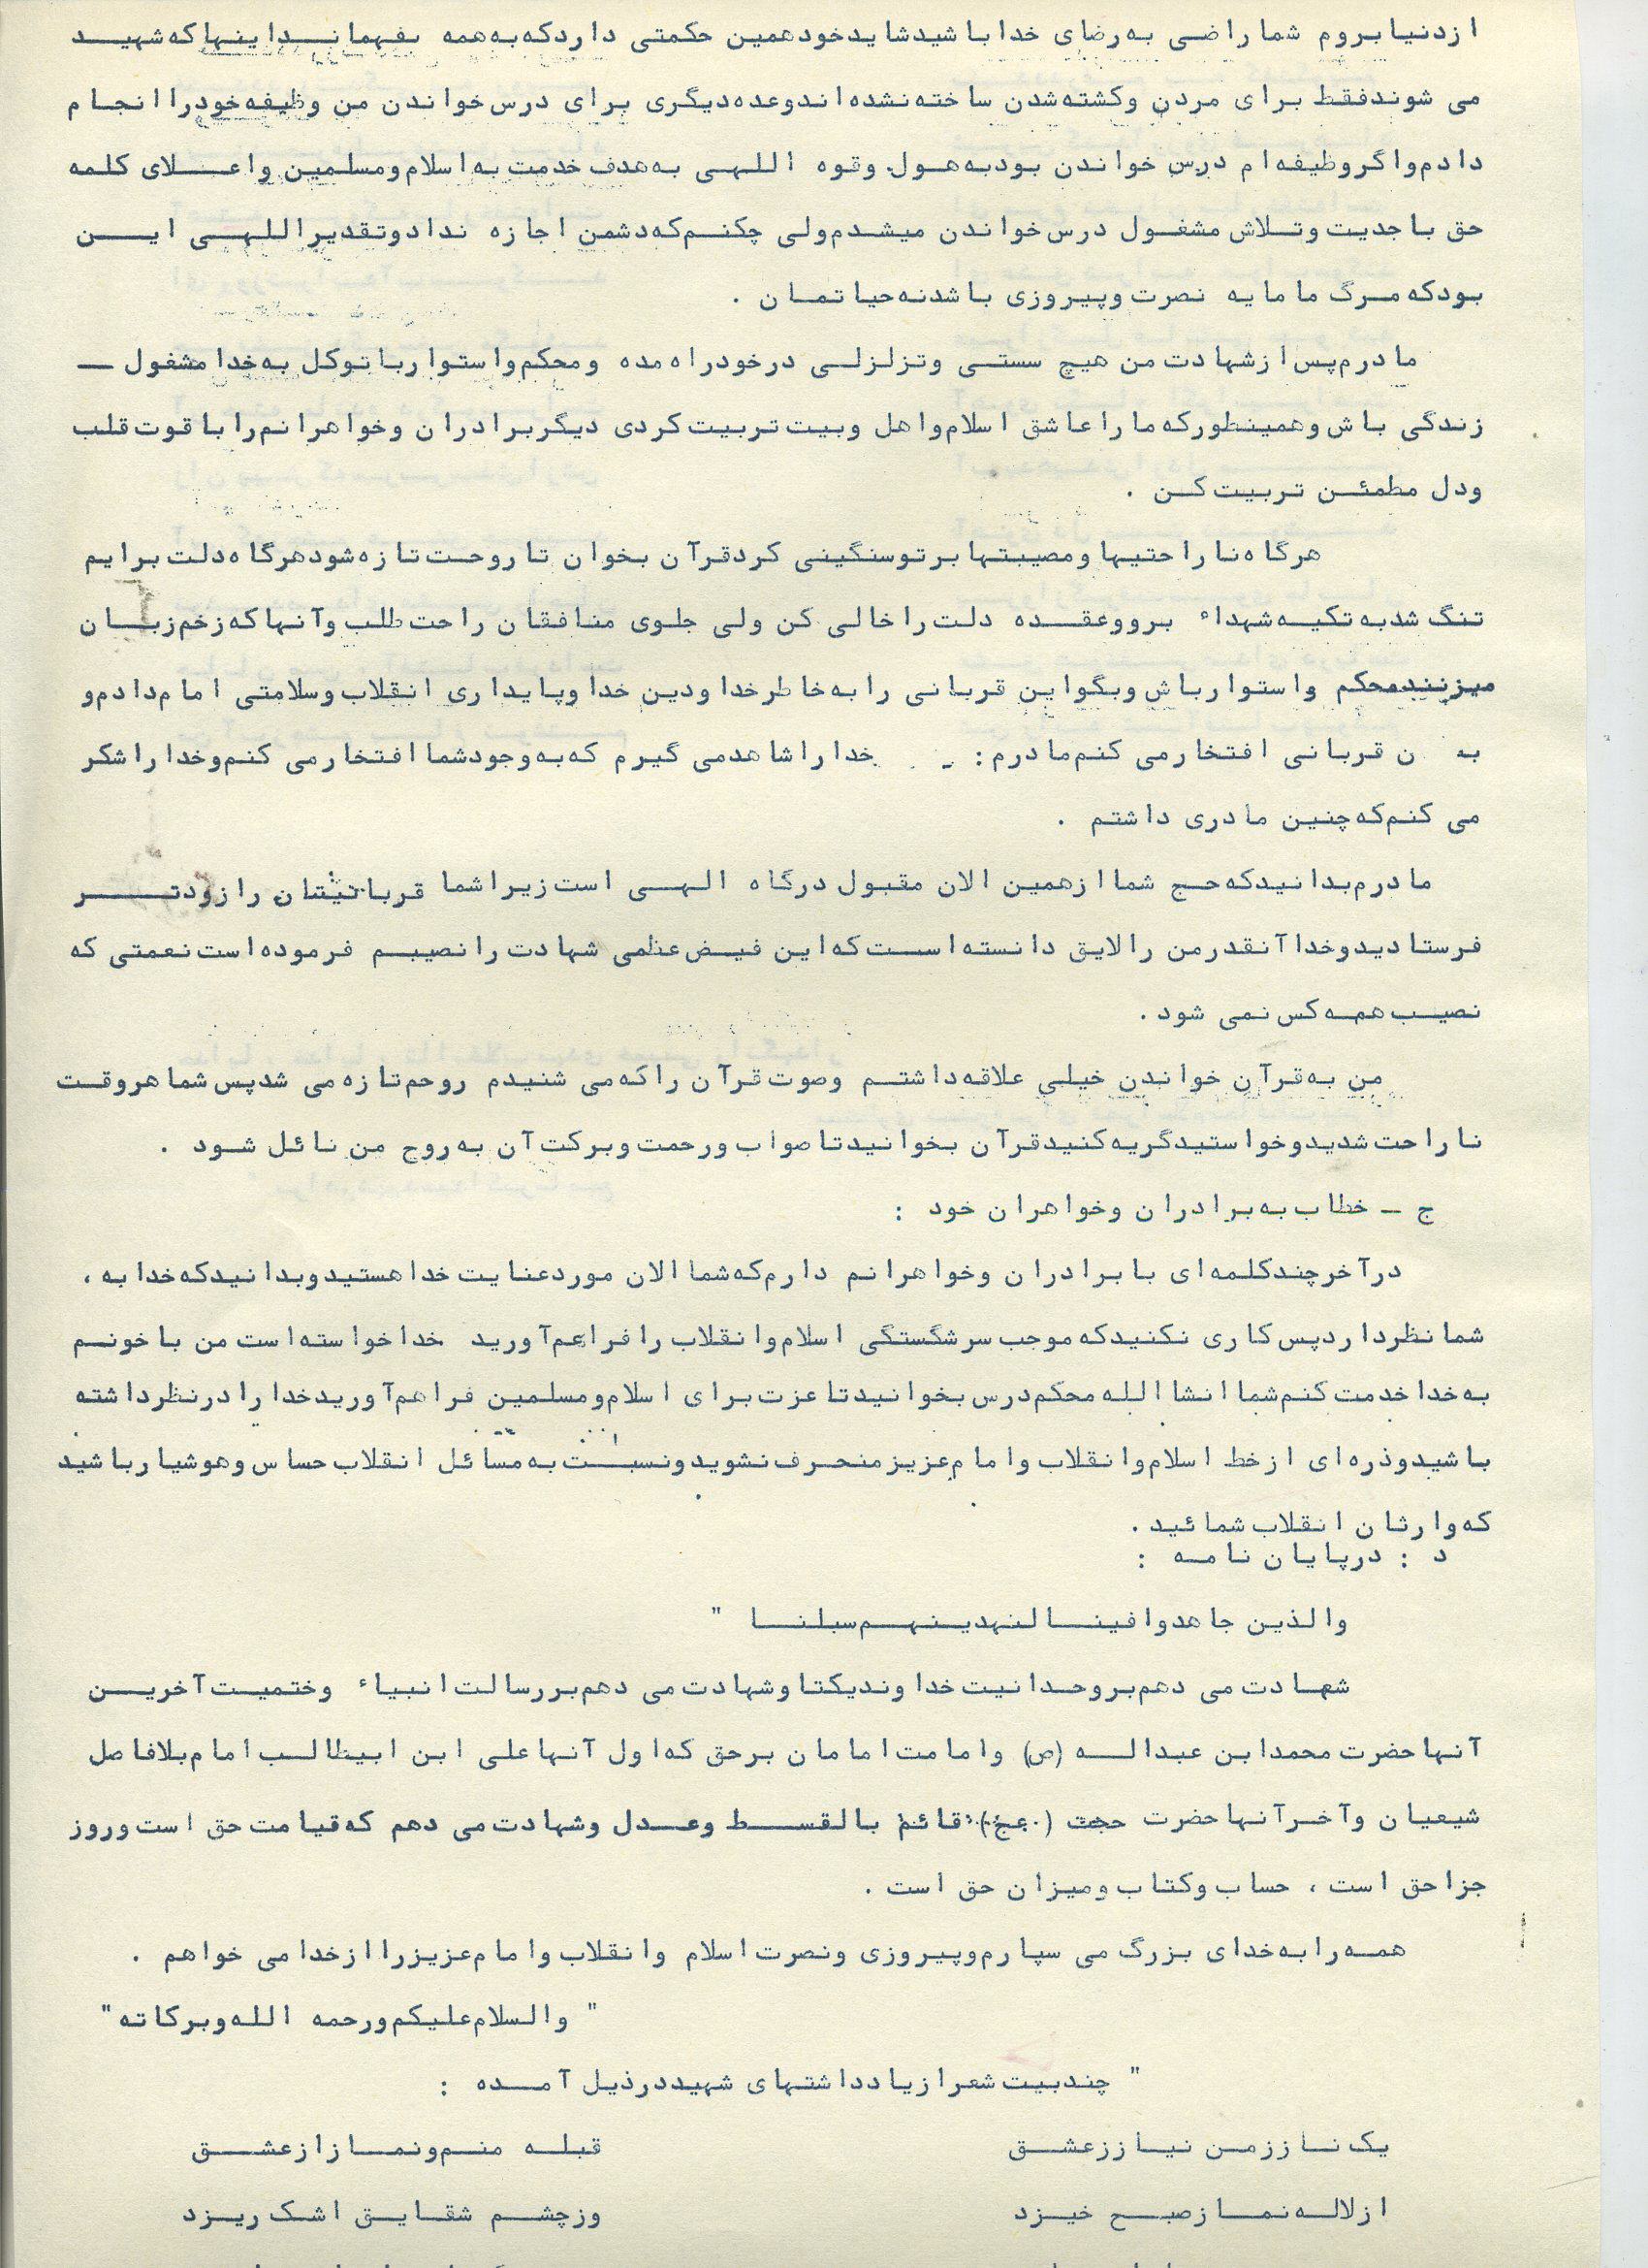 ازدنیا بروم شما راضی به رضای خدا باشید شاید خود همین حکمتی دارد که به همه بفهماند اینها که شهید
می شوند فقط برای مردن وکشته شدن ساخته نشده اند وعده دیگری برای درس خواندن من وظیفه خود را انجام
دادم واگر وظیفه ام درس خواندن بود به هول وقوه اللهی به هدف خدمت به اسلام ومسلمین واعلای کلمه
حق با جدیت وتلاش مشغول درس خواندن میشدم ولی چکنم که دشمن اجازه نداد وتقدیر اللهی این
بود که مرگ ما مایه نصرت وپیروزی باشد نه حیاتمان .
مادرم پس از شهادت من هیچ سستی وتزلزلی در خود راه مده ومحکم واستوار با توکل به خدا مشغول ـ
زندگی باش وهمینطور که ما را عاشق اسلام واهل وبیت تربیت کردی دیگر برادران وخواهرانم را با قوت قلب
ودل مطمئن تربیت کن .
هرگاه ناراحتیها ومصیبتها بر تو سنگینی کرد قرآن بخوان تا روحت تازه شود هرگاه دلت برایم
تنگ شد به تکیه شهداء برو وعقده دلت را خالی کن ولی جلوی منافقان راحت طلب وآنها که زخم زبان
میزنند محکم واستوار باش وبگو این قربانی را به خاطر خدا ودین خدا وپایداری انقلاب وسلامتی امام دادم و
به ن قربانی افتخار می کنم مادرم : ـ خدا را شاهد می گیرم که به وجود شما افتخار می کنم وخدا را شکر
می کنم که چنین مادری داشتم .
مادرم بدانید که حج شما از همین الان مقبول درگاه الهی است زیرا شما قربانیتان را زودتر
فرستادید وخدا آنقدر من را لایق دانسته است که این فیض عظمی شهادت را نصیبم فرموده است نعمتی که
نصیب همه کس نمی شود .
من به قرآن خواندن خیلی علاقه داشتم وصوت قرآن را که می شنیدم روحم تازه می شد پس شما هر وقت
ناراحت شدید وخواستید گریه کنید قرآن بخوانید تا صواب ورحمت وبرکت آن به روح من نائل شود .
ج ـ خطاب به برادران وخواهران خود :
در آخر چند کلمه ای با برادران وخواهرانم دارم که شما الان مورد عنایت خدا هستید وبدانید که خدا به ،
شما نظر دارد پس کاری نکنید که موجب سرشگستگی اسلام وانقلاب را فراهم آورید خدا خواسته است من با خونم
به خدا خدمت کنم شما انشا الله محکم درس بخوانید تا عزت برای اسلام ومسلمین فراهم آورید خدا را در نظر داشته
باشید وذره ای از خط اسلام وانقلاب وامام عزیز منحرف نشوید ونسبت به مسائل انقلاب حساس وهوشیار باشید
که وارثان انقلاب شمائید .
د : در پایان نامه :
والذین جاهدوا فینا لنهدینهم سبلنا "
شهادت می دهم بر وحدانیت خداوند یکتا وشهادت می دهم بر رسالت انبیاء وختمیت آخرین
آنها حضرت محمد ابن عبداله (ص) وامامت امامان بر حق که اول آنها علی ابن ابیطالب امام بلافاصل
شیعیان وآخر آنها حضرت حجت (عج) قائم بالقسط وعدل وشهادت می دهم که قیامت حق است وروز
جزا حق است ، حساب وکتاب ومیزان حق است .
همه را به خدای بزرگ می سپارم وپیروزی ونصرت اسلام وانقلاب وامام عزیز را از خدا می خواهم .
" والسلام علیکم ورحمه الله وبرکاته "
" چند بیت شعر از یادداشتهای شهید در ذیل آمده :
یک ناز ز من نیاز ز عشق قبله منم ونماز از عشق
از لاله نماز صبح خیزد وز چشم شقایق اشک ریزد